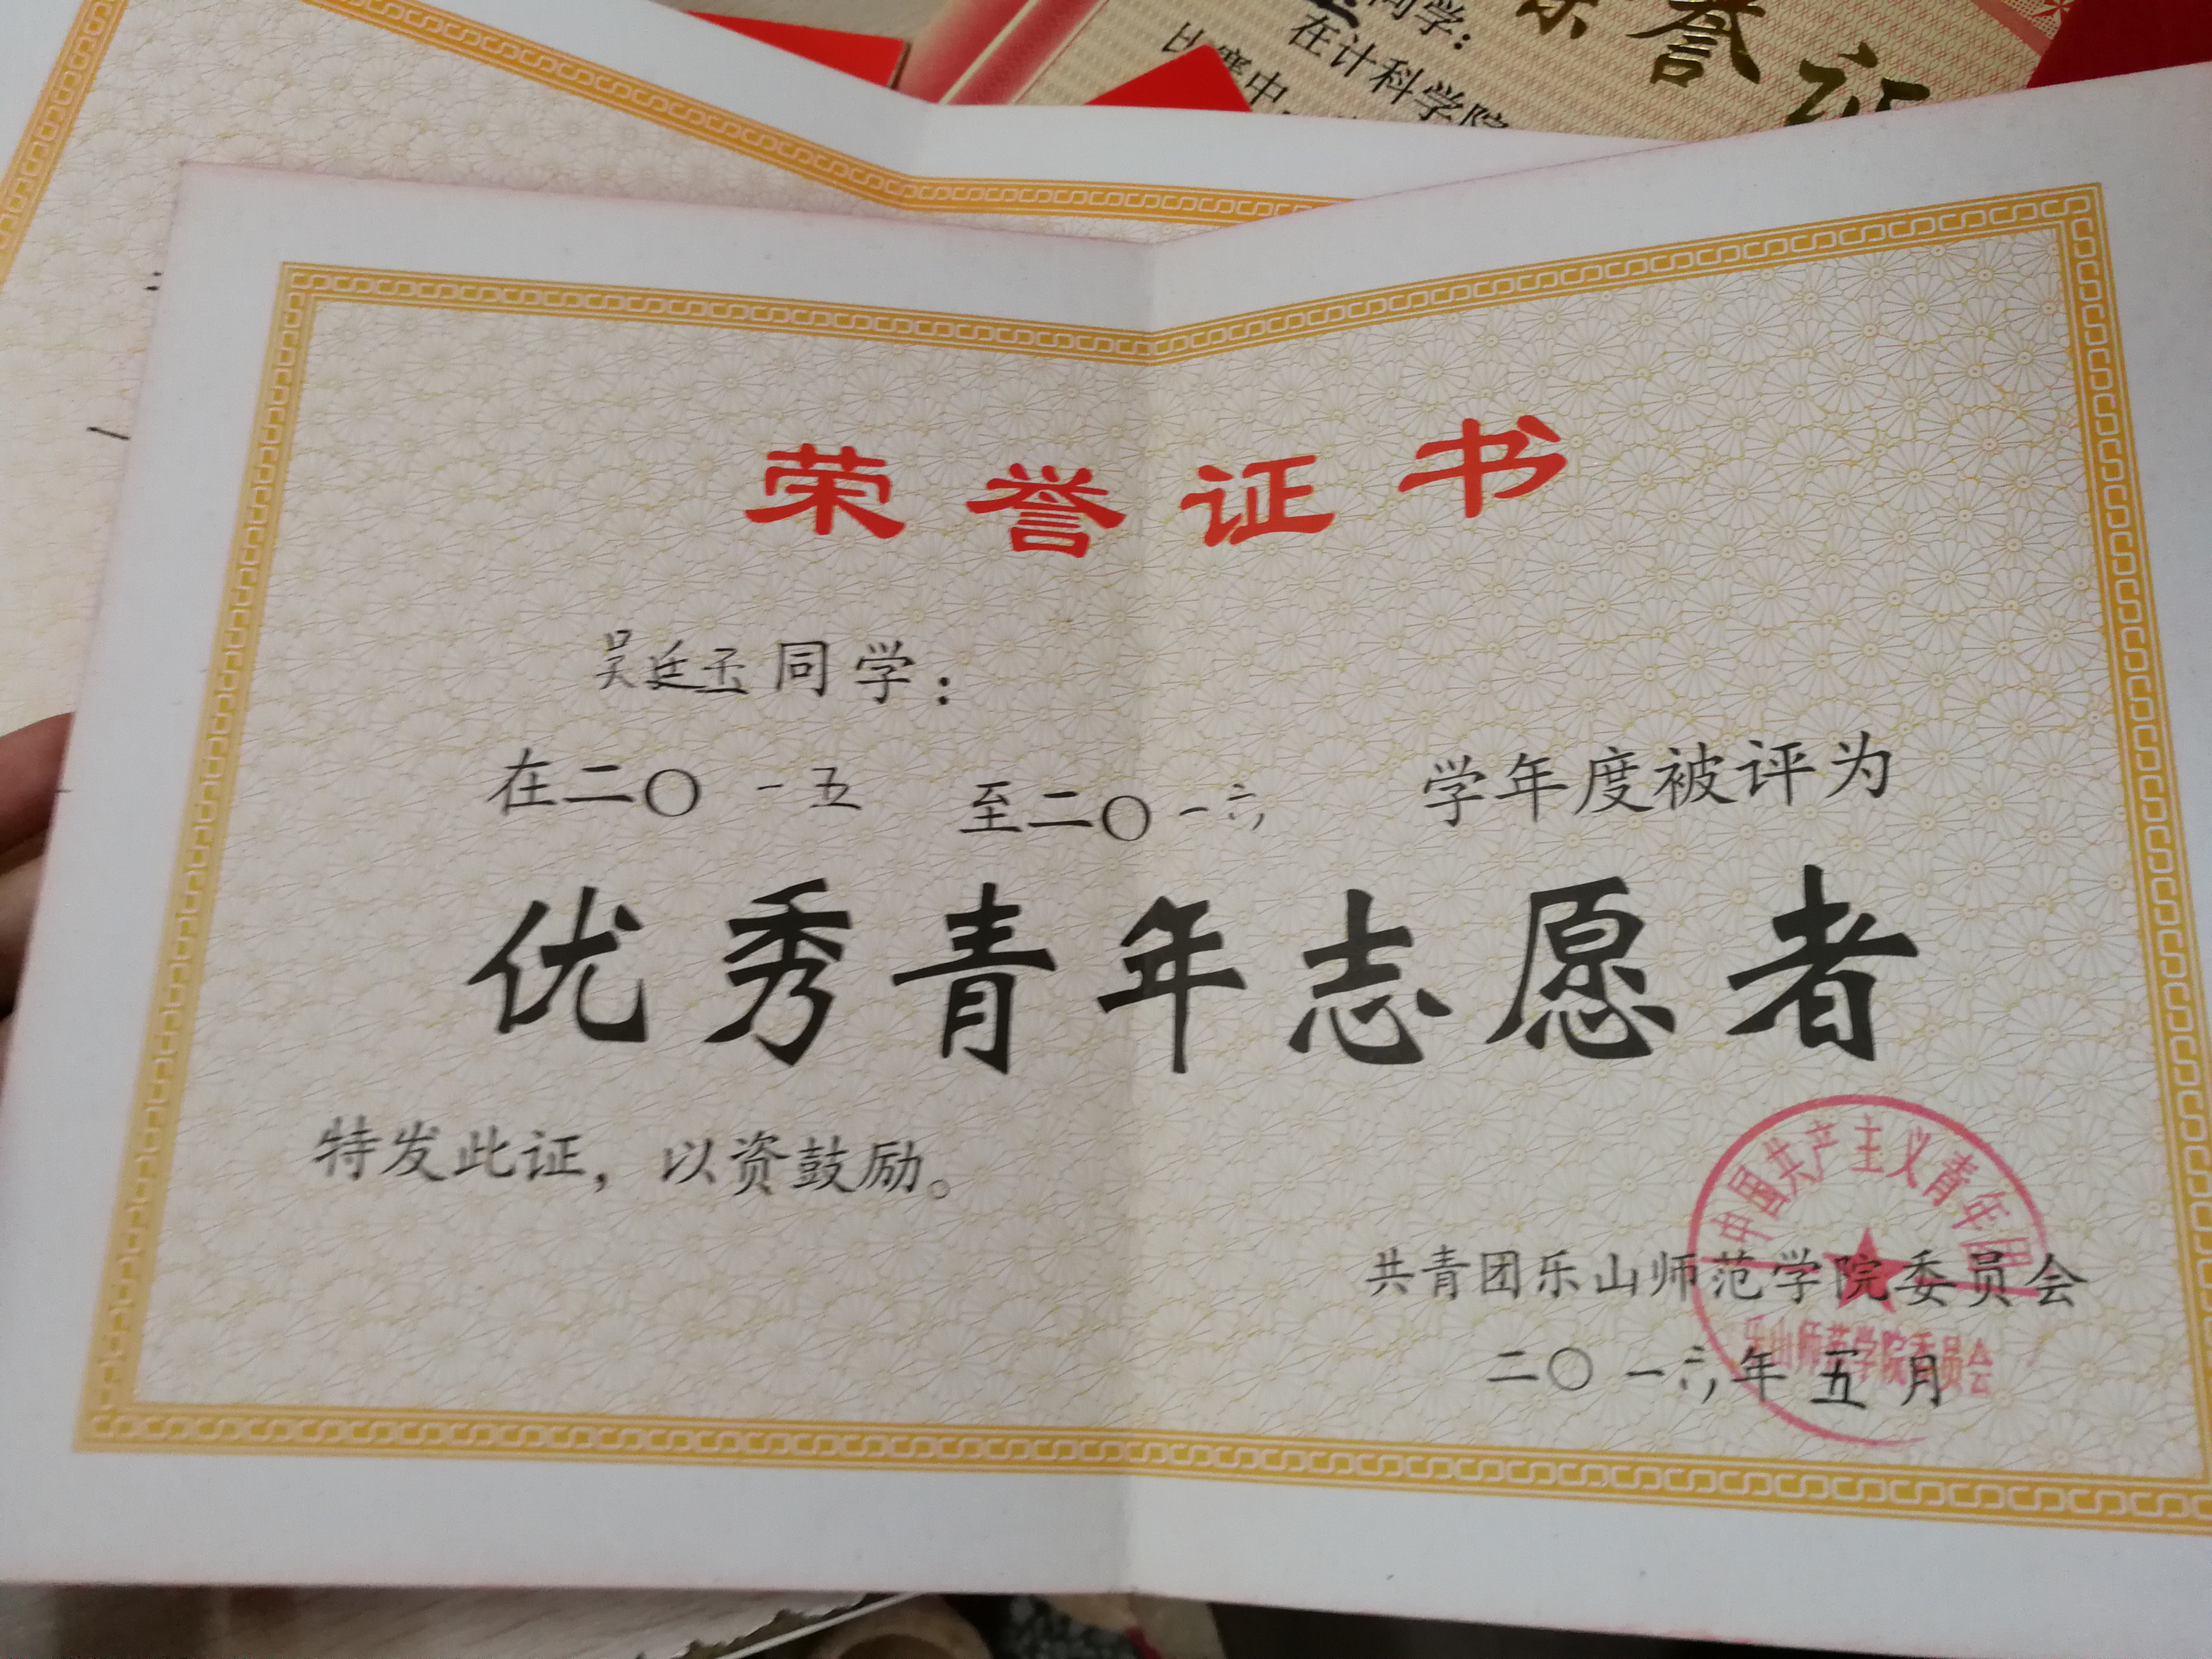 同学：
在计科学院
比赛中，
荣誉证书
吴廷玉同学：
在二〇一五至二〇一六学年度被评为
优秀青年志愿者
特发此证，以资鼓励。
共青团乐山师范学院委员会
二〇一六年五月
中国共产主义青年团
乐山师范学院委员会